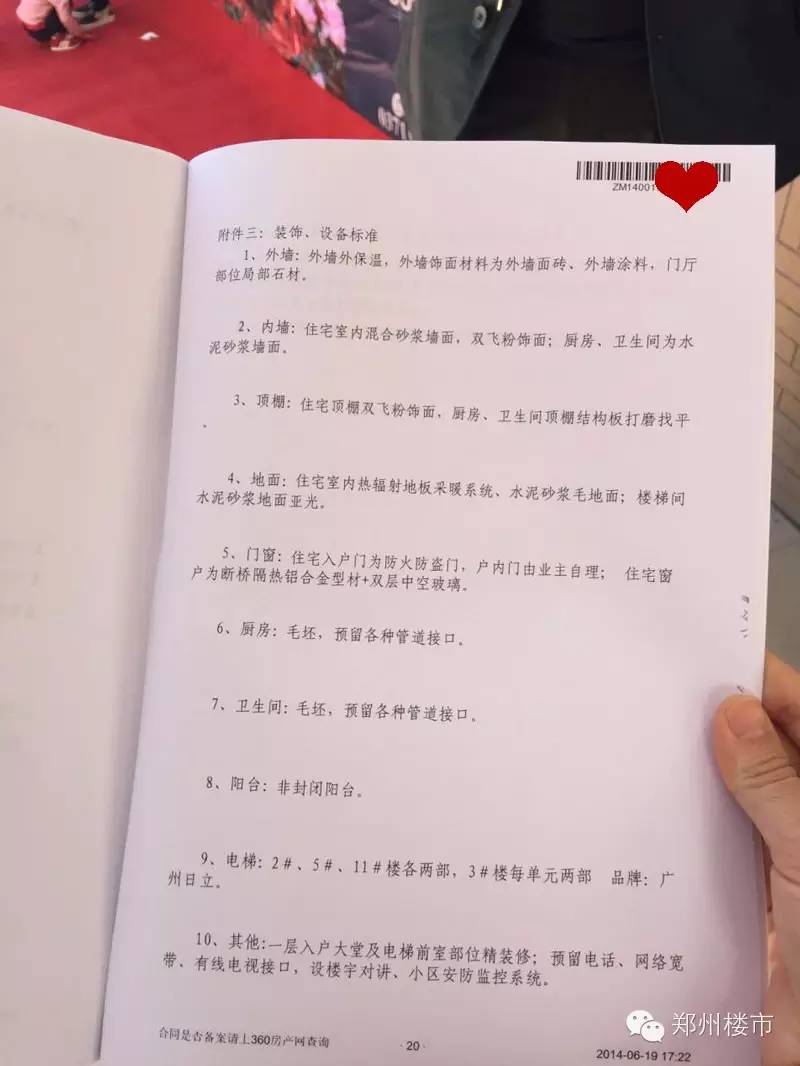 0371
ZM14001
附件三：装饰、设备标准
1、外墙：外墙外保温，外墙饰面材料为外墙面砖、外墙涂料，门厅
部位局部石材。
2、内墙：住宅室内混合砂浆墙面，双飞粉饰面；厨房、卫生间为水
泥砂浆墙面。
3、顶棚：住宅顶棚双飞粉饰面，厨房、卫生间顶棚结构板打磨找平
。
4、地面：住宅室内热辐射地板采暖系统、水泥砂浆毛地面；楼梯间
水泥砂浆地面亚光。
5、门窗：住宅入户门为防火防盗门，户内门由业主自理； 住宅窗
户为断桥隔热铝合金型材+双层中空玻璃。
6、厨房：毛坯，预留各种管道接口。
7、卫生间：毛坯，预留各种管道接口。
8、阳台：非封闭阳台。
9、电梯：2#、5#、11#楼各两部，3#楼每单元两部 品牌：广
州日立。
10、其他：一层入户大堂及电梯前室部位精装修；预留电话、网络宽
带、有线电视接口，设楼宇对讲、小区安防监控系统。
合同是否备案请上360房产网查询
·20·
2014-06-19 17:22
郑州楼市